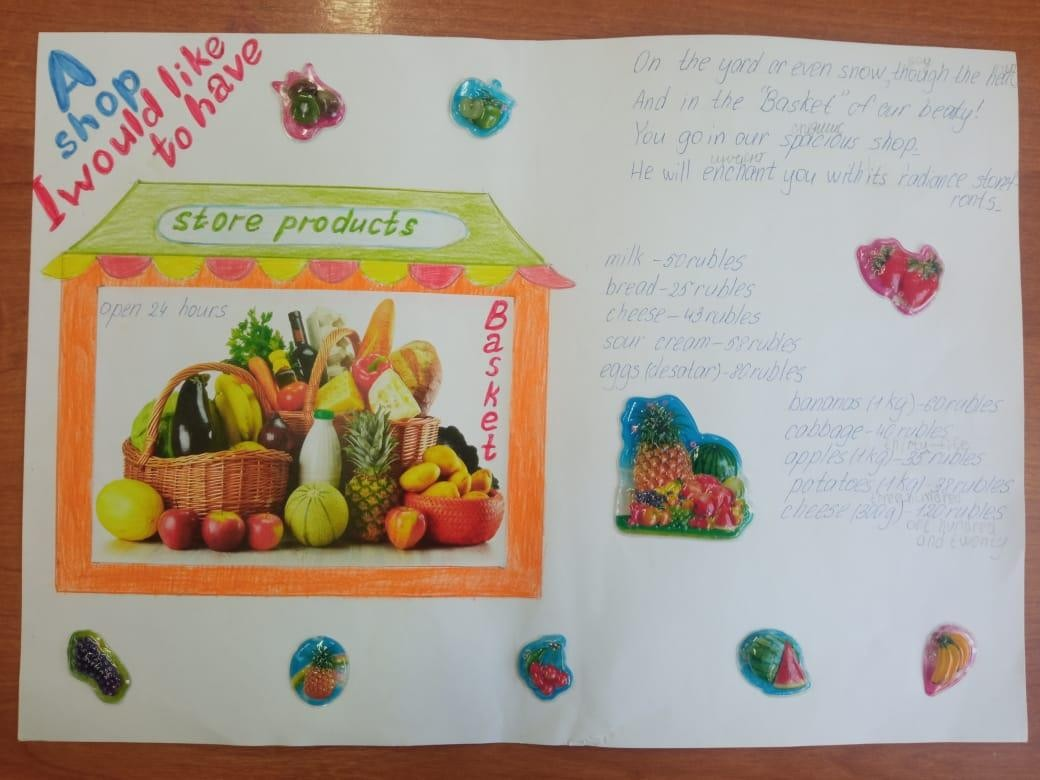 A
shop
I would like
to have
store products
open 24 hours
Basket
On the yard or even snow, though the heat
And in the "Basket" of our beaty!
You go in our spacious shop.
He will enchant you with its radiance storef-
ronts.
milk - 50 rubles
bread - 25 rubles
cheese - 43 rubles
sour cream - 58 rubles
eggs (desatar) - 80 rubles
bananas (1 kg) - 60 rubles
cabbage - 40 rubles
apples (1 kg) - 35 rubles
potatoes (1 kg) - 38 rubles
cheese (300g) - 120 rubles
one hundred
and twenty